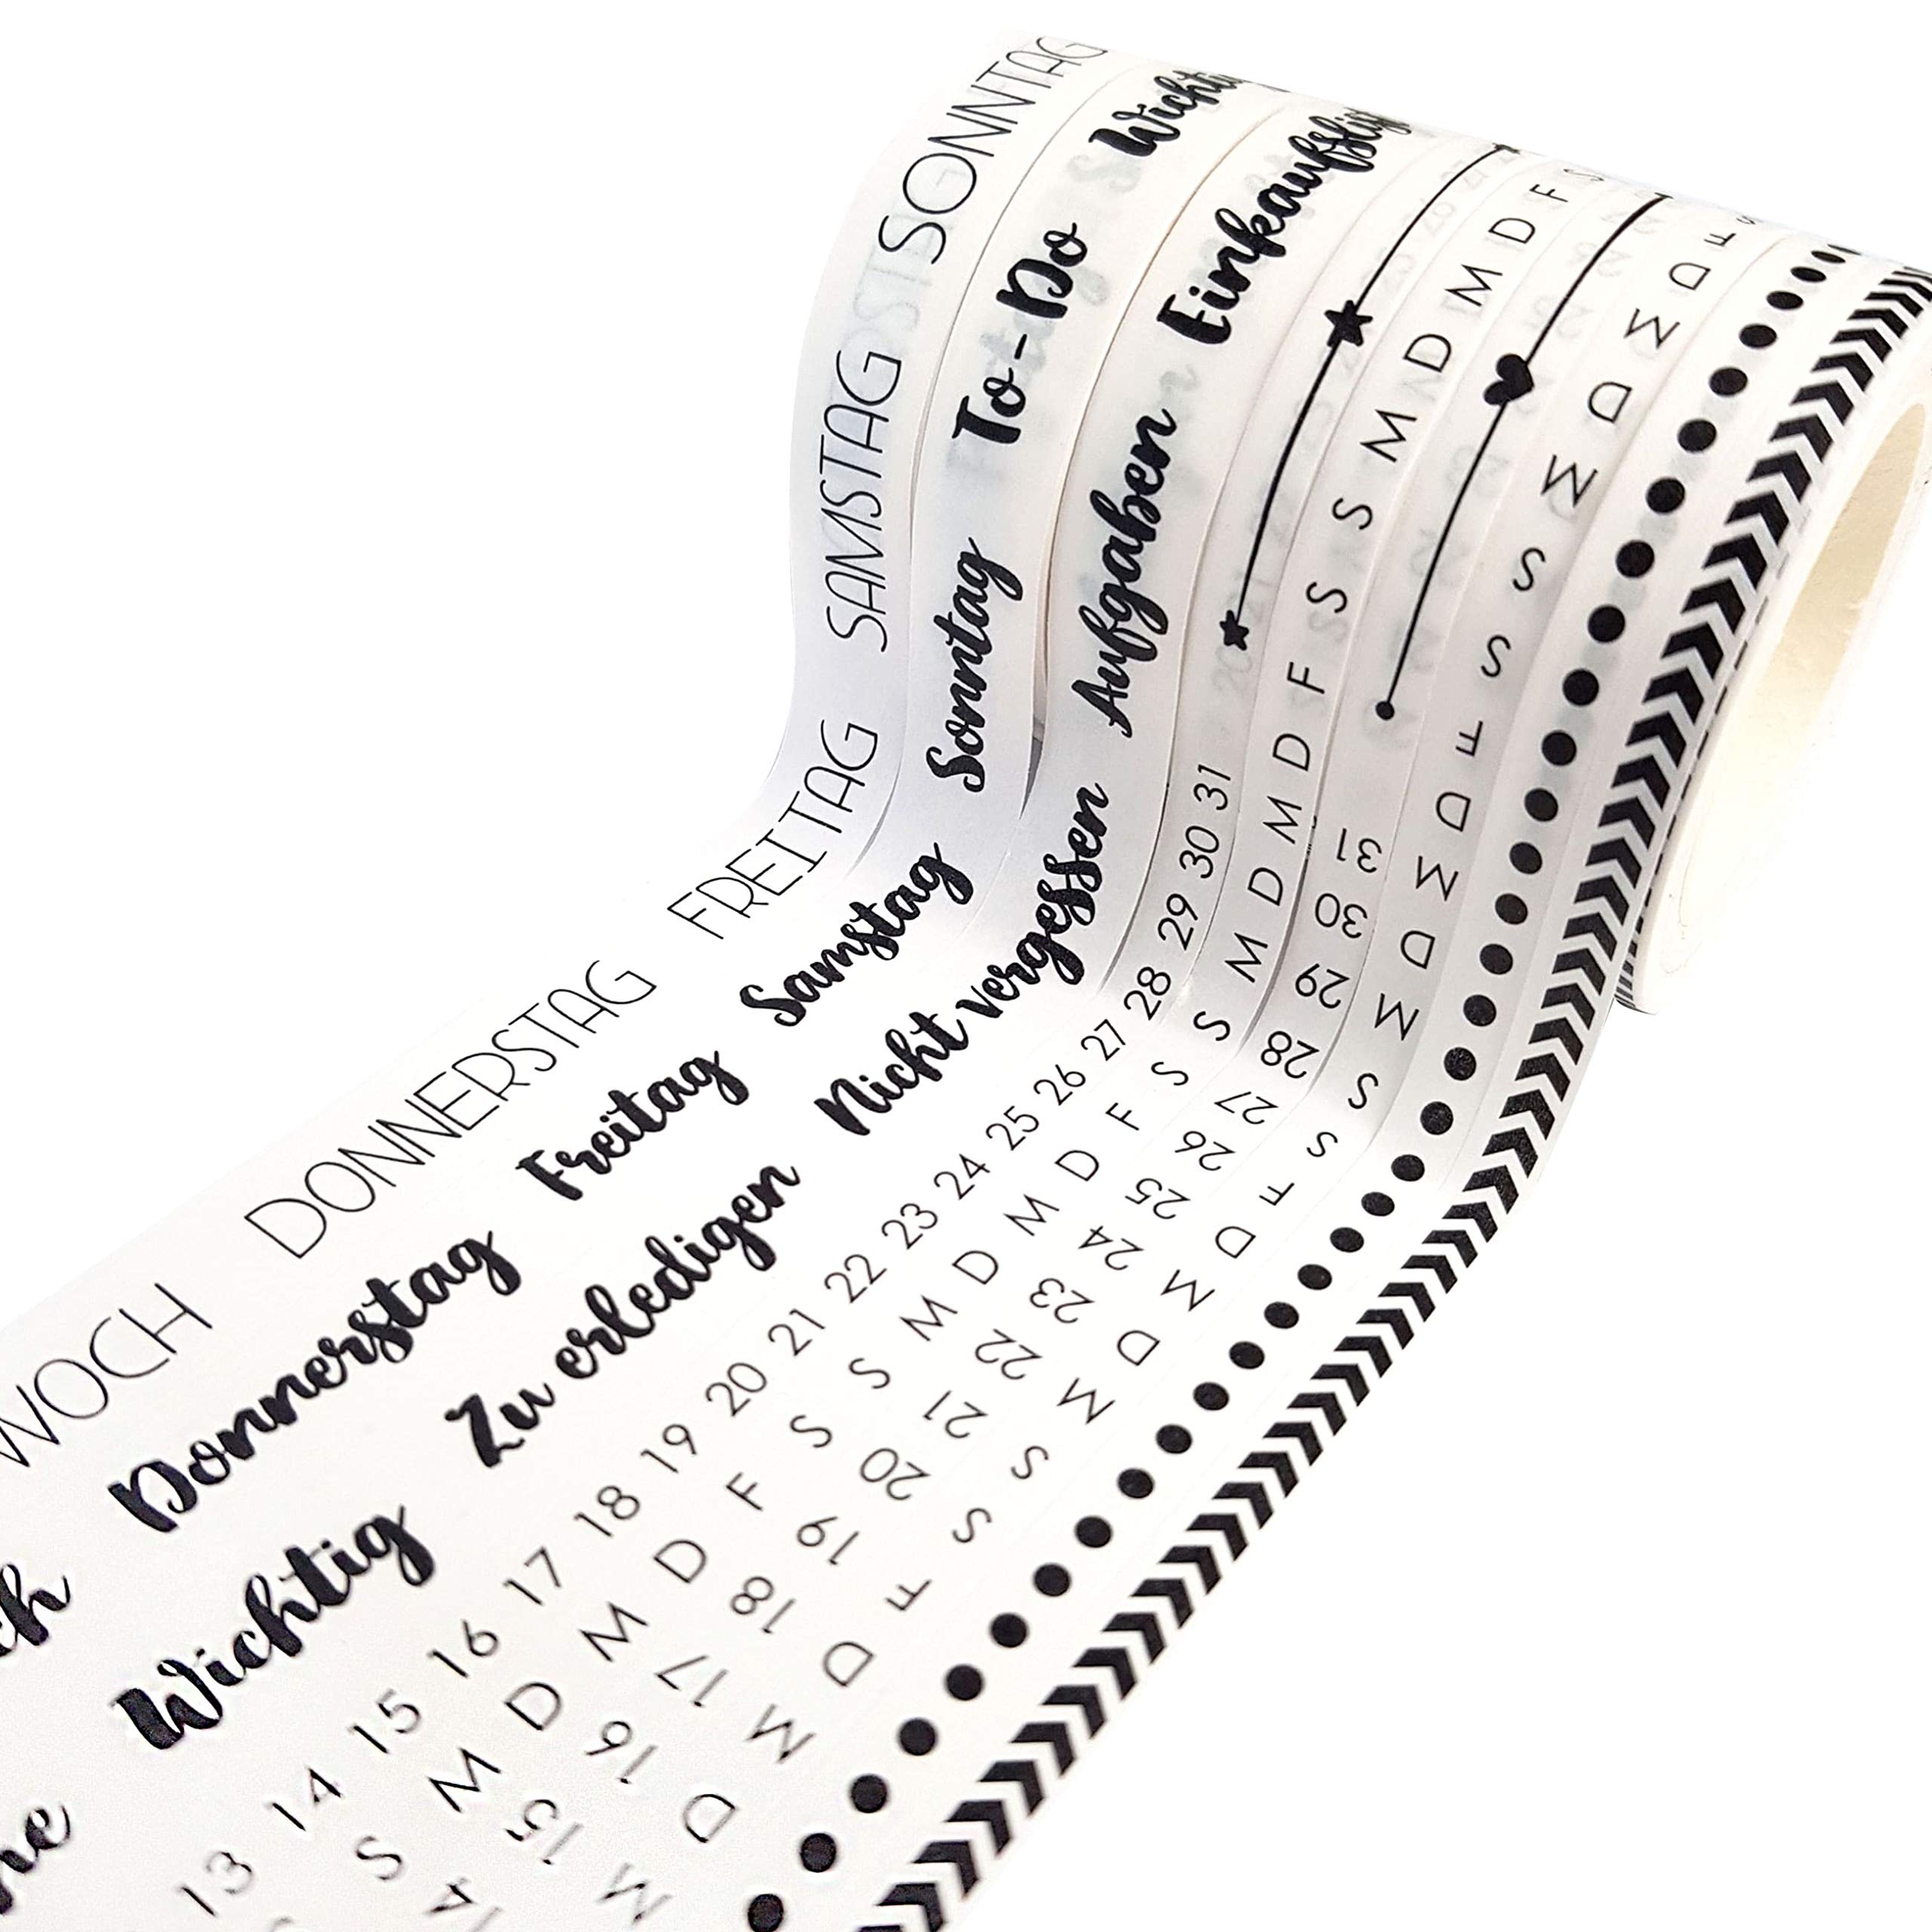 WOCH DONNERSTAG FREITAG SAMSTAG SONNTAG
ch Donnerstag Freitag Samstag Sonntag To-Do Wichti
ne Wichtig Zu erledigen Nicht vergessen Aufgaben Einkaufslist
13 14 15 16 17 18 19 20 21 22 23 24 25 26 27 28 29 30 31
S M D M D F S S M D M D F S S M D M D F S S M D M D F S
14 15 16 17 18 19 20 21 22 23 24 25 26 27 28 29 30 31
M D M D F S S M D M D F S S M D M D F S S M D M D F S